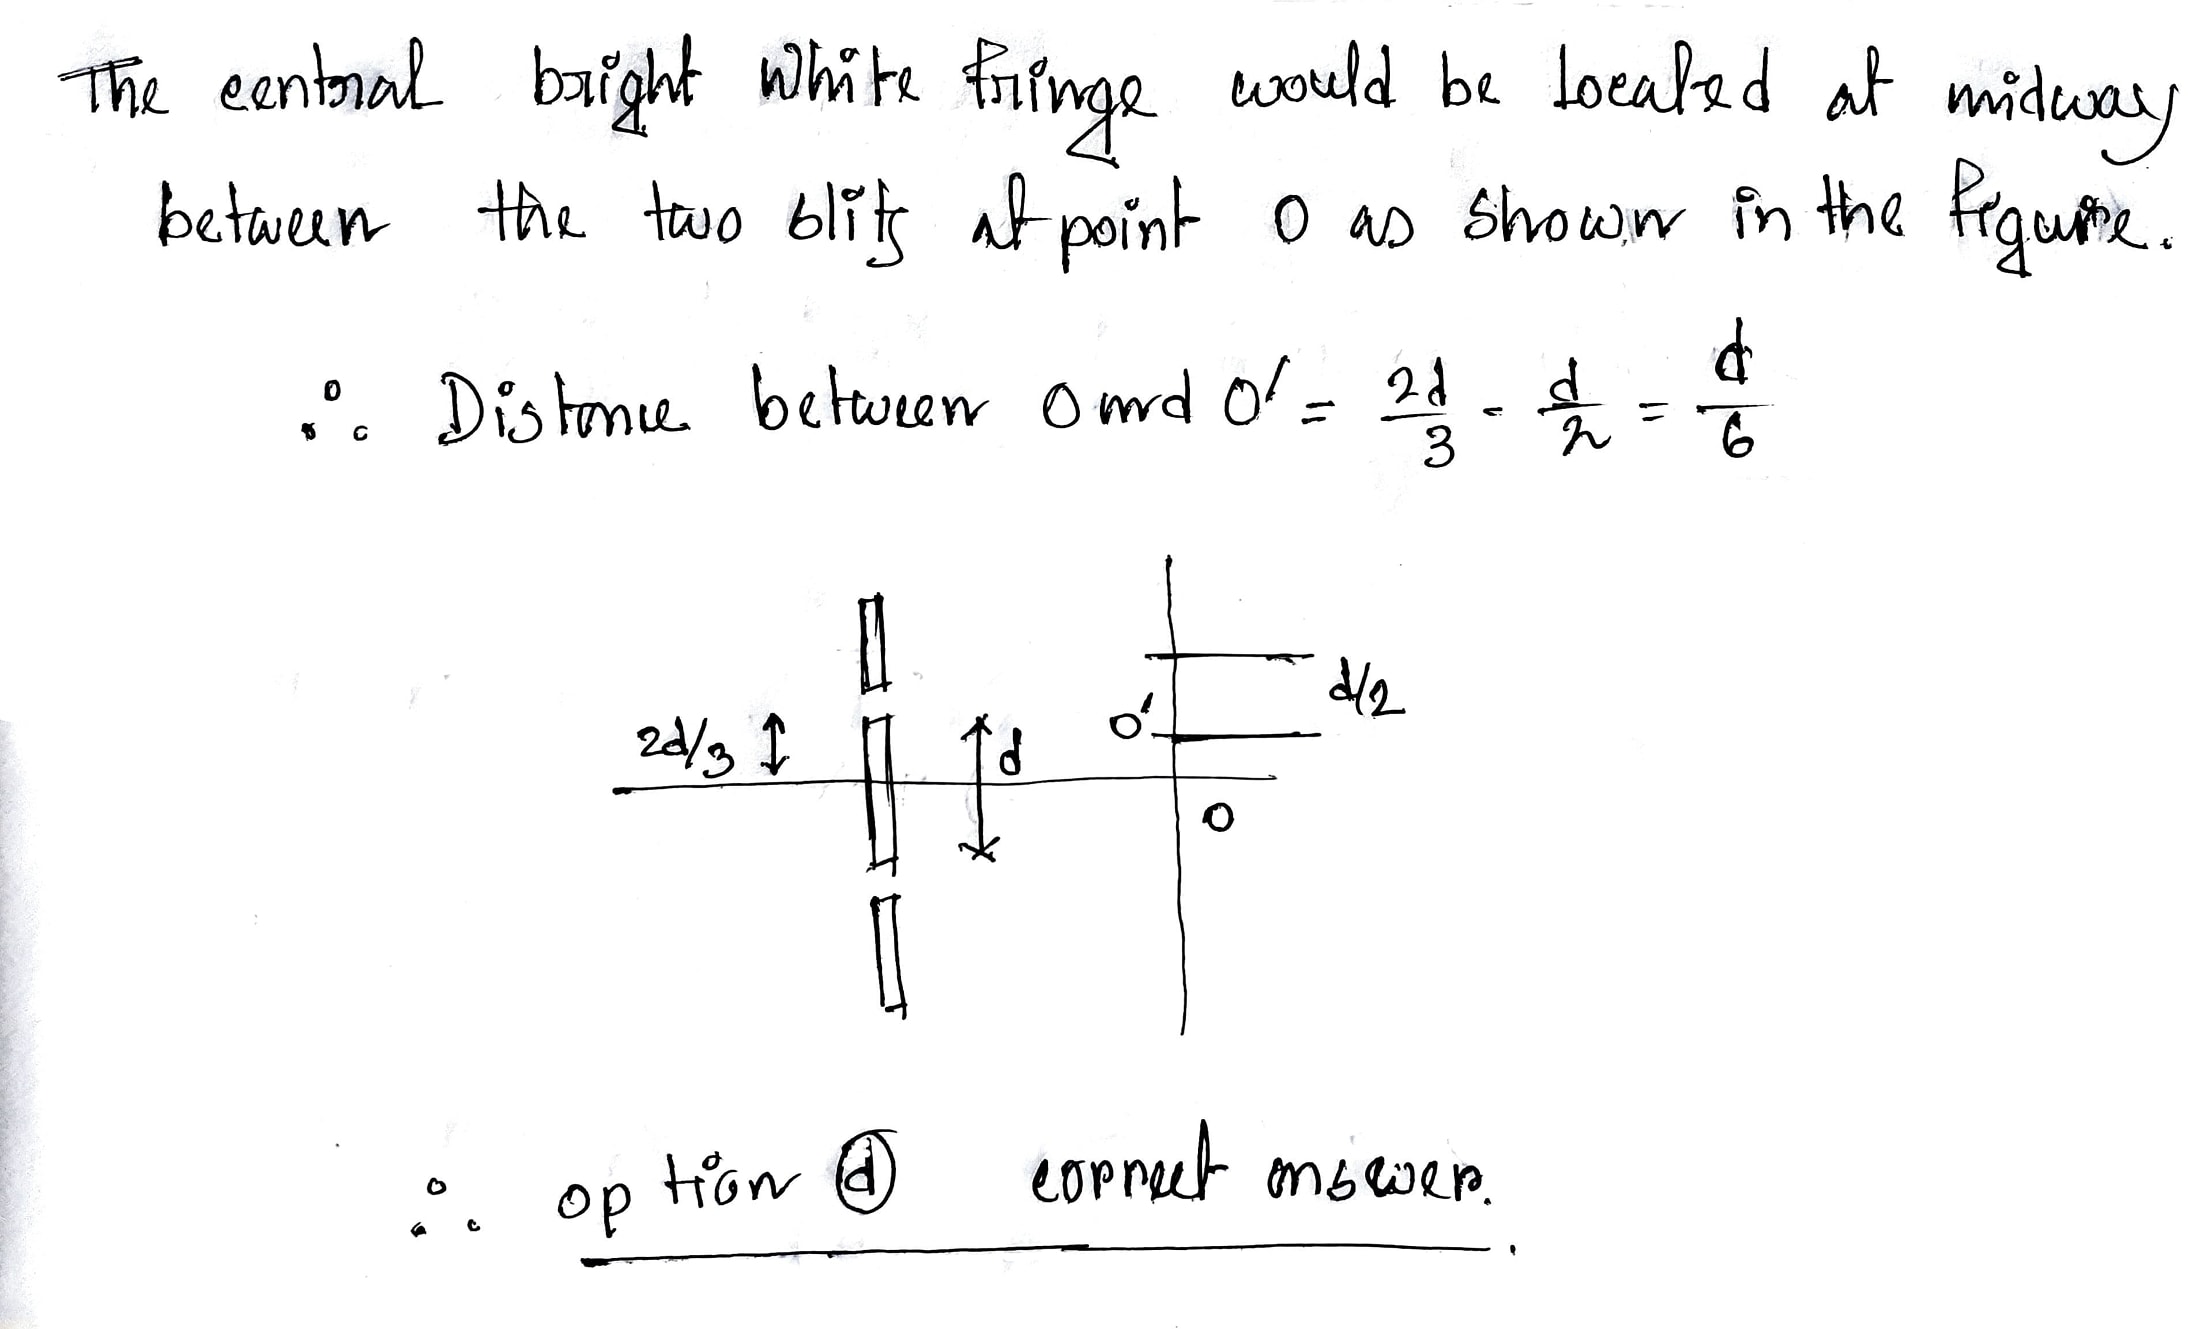 The central bright white fringe would be located at midway
between the two slits at point O as shown in the figure.
∴ Distance between O and O' = 2d/3 - d/2 = d/6
d/2
2d/3
d
O'
O
∴ option ⓓ correct answer.